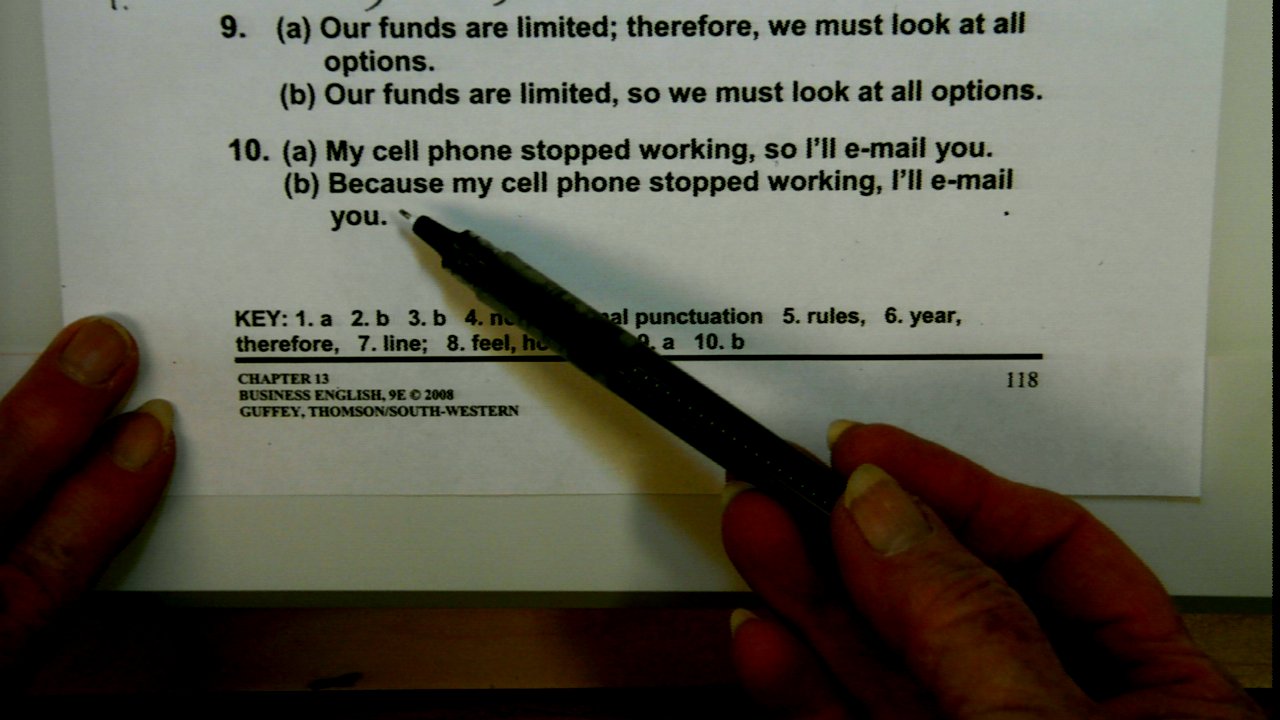 9. (a) Our funds are limited; therefore, we must look at all
options.
(b) Our funds are limited, so we must look at all options.
10. (a) My cell phone stopped working, so I'll e-mail you.
(b) Because my cell phone stopped working, I'll e-mail
you.
KEY: 1. a 2. b 3. b 4. punctuation 5. rules, 6. year,
therefore, 7. line; 8. feel, 9. a 10. b
CHAPTER 13
BUSINESS ENGLISH, 9E © 2008
GUFFEY, THOMSON/SOUTH-WESTERN
118